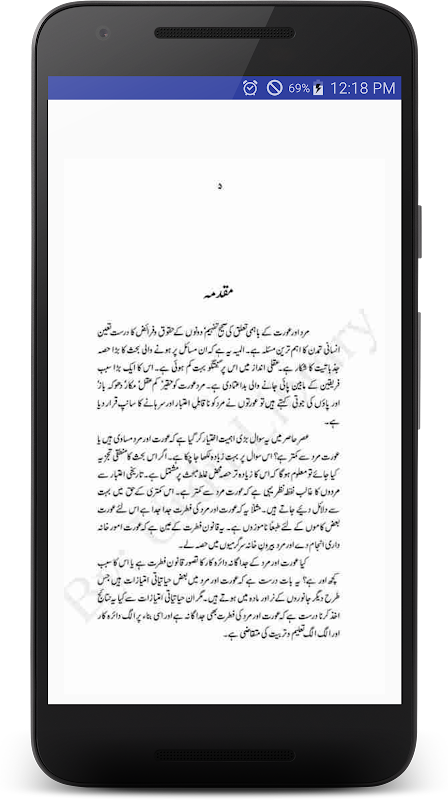 69% 12:18 PM
د
مقدمہ
مرد اور عورت کے باہمی تعلق کی صحیح تفہیم' دونوں کے حقوق و فرائض کا درست تعین
انسانی تمدن کا اہم ترین مسئلہ ہے۔ المیہ یہ ہے کہ ان مسائل پر ہونے والی بحث کا بڑا حصہ
جذباتیت کا شکار ہے۔ عقلی انداز میں اس پر گفتگو بہت کم ہوئی ہے۔ اس کا ایک بڑا سبب
فریقین کے مابین پائی جانے والی بداعتمادی ہے۔ مرد عورت کو حقیر' کم عقل' مکار' دھوکہ باز'
اور پاؤں کی جوتی کہتے ہیں تو عورتوں نے مرد کو ناقابل اعتبار اور سرہانے کا سانپ قرار دیا
ہے۔
عصر حاضر میں یہ سوال بڑی اہمیت اختیار کر گیا ہے کہ عورت اور مرد مساوی ہیں یا
عورت مرد سے کمتر ہے؟ اس سوال پر بہت زیادہ لکھا جا چکا ہے۔ اگر اس بحث کا منطقی تجزیہ
کیا جائے تو معلوم ہو گا کہ اس کا زیادہ تر حصہ محض غلط مبحث پر مشتمل ہے۔ تاریخی اعتبار سے
مردوں کا غالب نقطہ نظر یہی ہے کہ عورت مرد سے کمتر ہے۔ اس کمتری کے حق میں بہت
سے دلائل دیئے جاتے ہیں۔ مثلاً یہ کہ عورت اور مرد کی فطرت جدا جدا ہے اس لئے عورت
بعض کاموں کے لئے طبعاً ناموزوں ہے۔ یہ قانون فطرت کے عین ہے کہ عورت امور خانہ
داری انجام دے اور مرد بیرون خانہ سرگرمیوں میں حصہ لے۔
کیا عورت اور مرد کے جداگانہ دائرہ کار کا تصور قانون فطرت ہے یا اس کا سبب
کچھ اور ہے؟ یہ بات درست ہے کہ عورت اور مرد میں بعض حیاتیاتی امتیازات ہیں جس
طرح دیگر جانوروں کے نر اور مادہ میں ہوتے ہیں۔ مگر ان حیاتیاتی امتیازات سے کیا یہ نتائج
اخذ کرنا درست ہے کہ عورت اور مرد کی فطرت بھی جداگانہ ہے اور اسی بناء پر الگ دائرہ کار
اور الگ الگ تعلیم و تربیت کی متقاضی ہے۔